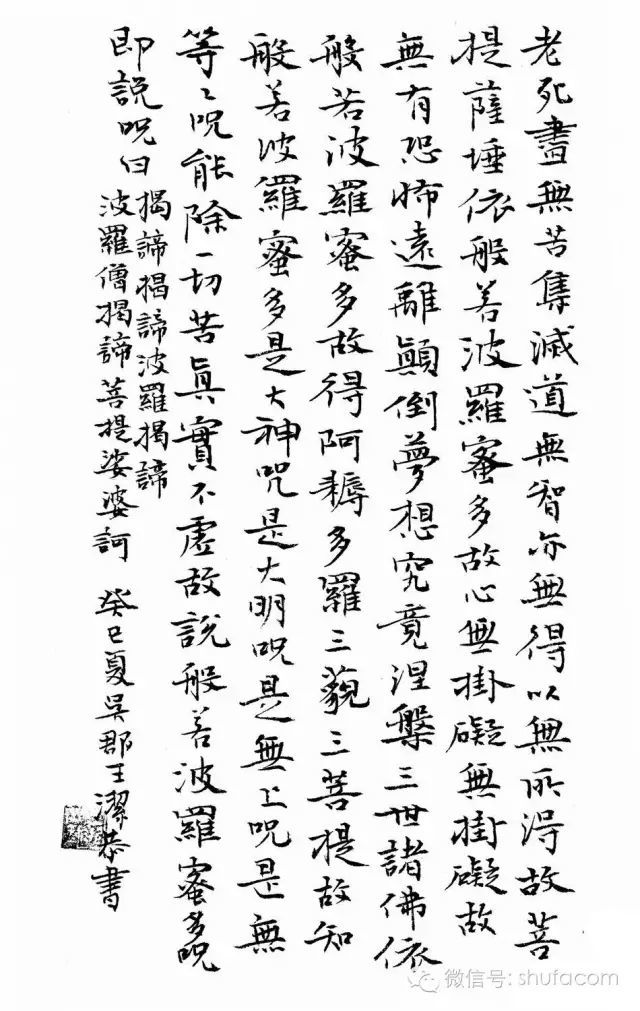 老死盡無苦集滅道無智亦無得以無所得故菩
提薩埵依般若波羅蜜多故心無掛礙無掛礙故
無有恐怖遠離顛倒夢想究竟涅槃三世諸佛依
般若波羅蜜多故得阿耨多羅三藐三菩提故知
般若波羅蜜多是大神咒是大明咒是無上咒是無
等々咒能除一切苦真實不虛故說般若波羅蜜多咒
即說咒曰
揭諦揭諦波羅揭諦
波羅僧揭諦菩提娑婆訶
癸巳夏吳郡王恭書
微信号: shufacom